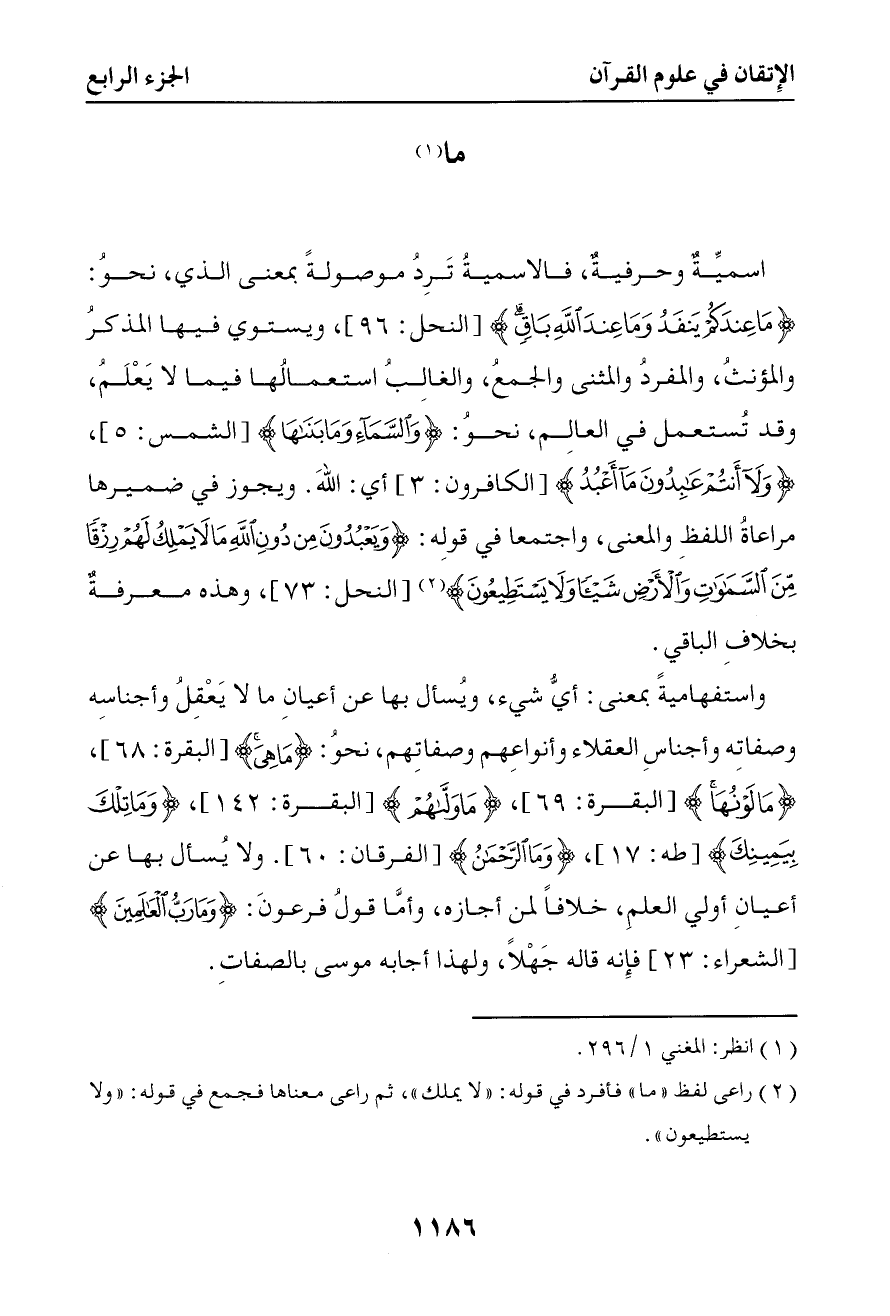 الإتقان في علوم القرآن
الجزء الرابع
ما(١)
اسميِّةٌ وحرفيةٌ، فالاسميةُ تَرِدُ موصولةً بمعنى الذي، نحوُ:
﴿مَا عِندَكُمْ يَنفَدُ وَمَا عِندَ ٱللَّهِ بَاقٍۗ﴾ [النحل: ٩٦]، ويستوي فيها المذكرُ
والمؤنثُ، والمفردُ والمثنى والجمعُ، والغالبُ استعمالُها فيما لا يَعْلَمُ،
وقد تُستعمل في العالِم، نحوُ: ﴿وَٱلسَّمَآءِ وَمَا بَنَىٰهَا﴾ [الشمس: ٥]،
﴿وَلَآ أَنتُمْ عَٰبِدُونَ مَآ أَعْبُدُ﴾ [الكافرون: ٣] أي: اللهَ. ويجوز في ضميرها
مراعاةُ اللفظِ والمعنى، واجتمعا في قوله: ﴿وَيَعْبُدُونَ مِن دُونِ ٱللَّهِ مَا لَا يَمْلِكُ لَهُمْ رِزْقًا
مِّنَ ٱلسَّمَٰوَٰتِ وَٱلْأَرْضِ شَيْـًٔا وَلَا يَسْتَطِيعُونَ﴾(٢) [النحل: ٧٣]، وهذه معرفةٌ
بخلافِ الباقي.
واستفهاميةً بمعنى: أيُّ شيء، ويُسأل بها عن أعيانِ ما لا يَعْقِلُ وأجناسِه
وصفاتِه وأجناسِ العقلاء وأنواعِهم وصفاتِهم، نحوُ: ﴿مَا هِىَۚ﴾ [البقرة: ٦٨]،
﴿مَا لَوْنُهَاۚ﴾ [البقرة: ٦٩]، ﴿مَا وَلَّىٰهُمْ﴾ [البقرة: ١٤٢]، ﴿وَمَا تِلْكَ
بِيَمِينِكَ﴾ [طه: ١٧]، ﴿وَمَا ٱلرَّحْمَٰنُ﴾ [الفرقان: ٦٠]. ولا يُسأل بها عن
أعيانِ أولي العلمِ، خلافاً لمن أجازه، وأمَّا قولُ فرعونَ: ﴿وَمَا رَبُّ ٱلْعَٰلَمِينَ﴾
[الشعراء: ٢٣] فإنه قاله جَهْلاً، ولهذا أجابه موسى بالصفاتِ.
(١) انظر: المغني ٢٩٦/١.
(٢) راعى لفظ «ما» فأفرد في قوله: «لا يملك»، ثم راعى معناها فجمع في قوله: «ولا
يستطيعون».
١١٨٦